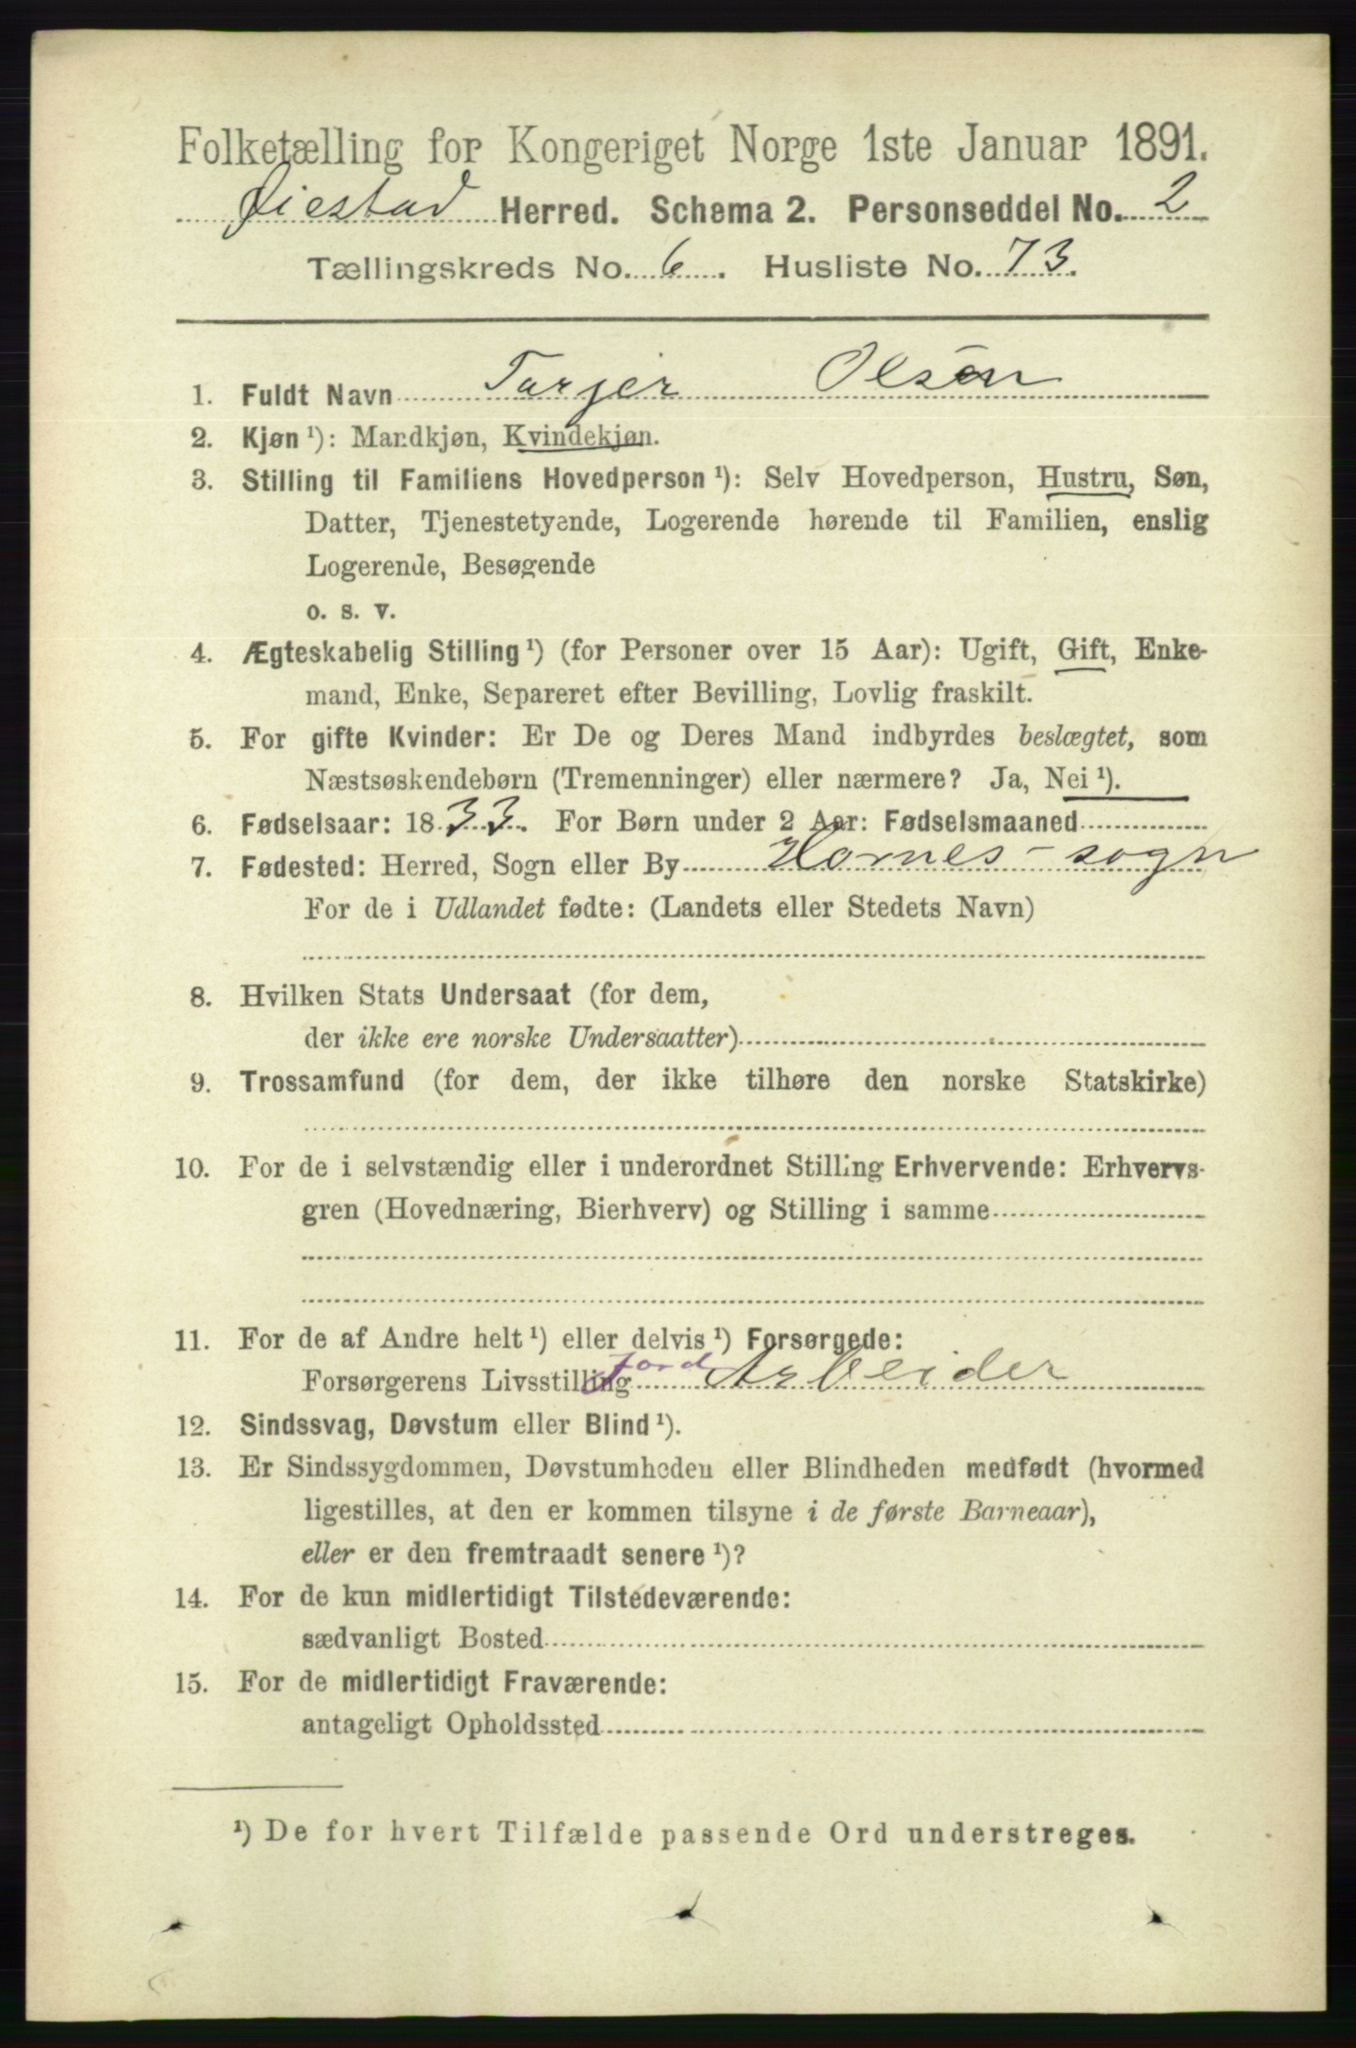 Folketælling for Kongeriget Norge 1ste Januar 1891.
Øiestad Herred. Schema 2. Personseddel No. 2
Tællingskreds No. 6. Husliste No. 73.
1. Fuldt Navn Tarjer Olsen
2. Kjøn ¹): Mandkjøn, Kvindekjøn.
3. Stilling til Familiens Hovedperson ¹): Selv Hovedperson, Hustru, Søn,
Datter, Tjenestetyende, Logerende hørende til Familien, enslig
Logerende, Besøgende
o. s. v.
4. Ægteskabelig Stilling ¹) (for Personer over 15 Aar): Ugift, Gift, Enke-
mand, Enke, Separeret efter Bevilling, Lovlig fraskilt.
5. For gifte Kvinder: Er De og Deres Mand indbyrdes beslægtet, som
Næstsøskendebørn (Tremenninger) eller nærmere? Ja, Nei ¹).
6. Fødselsaar: 1833. For Børn under 2 Aar: Fødselsmaaned
7. Fødested: Herred, Sogn eller By Hornes-sogn
For de i Udlandet fødte: (Landets eller Stedets Navn)
8. Hvilken Stats Undersaat (for dem,
der ikke ere norske Undersaatter)
9. Trossamfund (for dem, der ikke tilhøre den norske Statskirke)
10. For de i selvstændig eller i underordnet Stilling Erhvervende: Erhvervs-
gren (Hovednæring, Bierhverv) og Stilling i samme
11. For de af Andre helt ¹) eller delvis ¹) Forsørgede:
Forsørgerens Livsstilling Jord Arbeider
12. Sindssvag, Døvstum eller Blind ¹).
13. Er Sindssygdommen, Døvstumheden eller Blindheden medfødt (hvormed
ligestilles, at den er kommen tilsyne i de første Barneaar),
eller er den fremtraadt senere ¹)?
14. For de kun midlertidigt Tilstedeværende:
sædvanligt Bosted
15. For de midlertidigt Fraværende:
antageligt Opholdssted
¹) De for hvert Tilfælde passende Ord understreges.